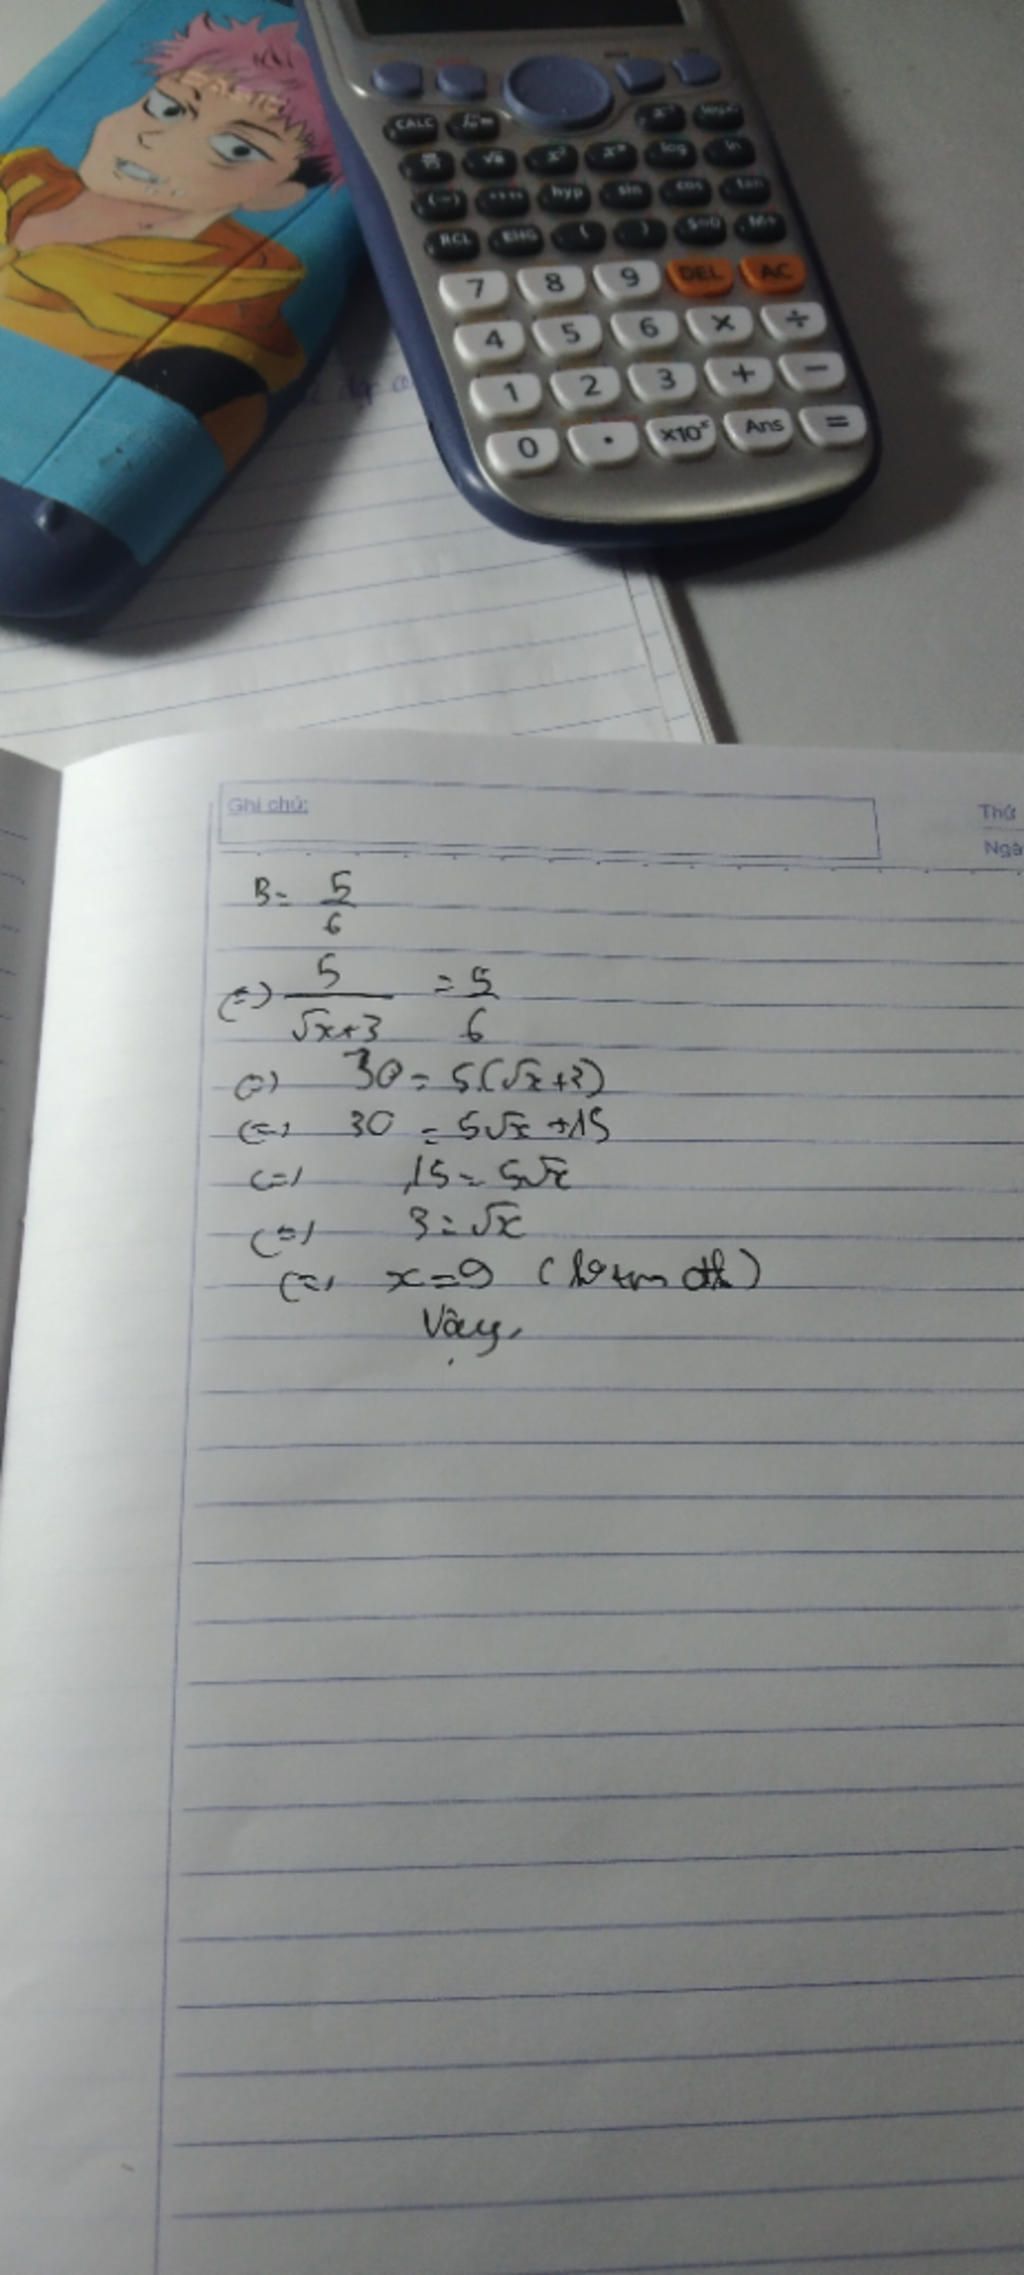 CALC
x² log
(−) hyp sin cos tan
RCL ENG ( ) S⇔D M+
7 8 9 DEL AC
4 5 6 × ÷
1 2 3 + −
0 . ×10ˣ Ans =
Ghi chú:
Thứ
Ngà
B = 5/6
(=) 5/(√x+3) = 5/6
(=) 30 = 5.(√x+3)
(=) 30 = 5√x +15
(=) 15 = 5√x
(=) 3 = √x
(=) x = 9
Vậy,